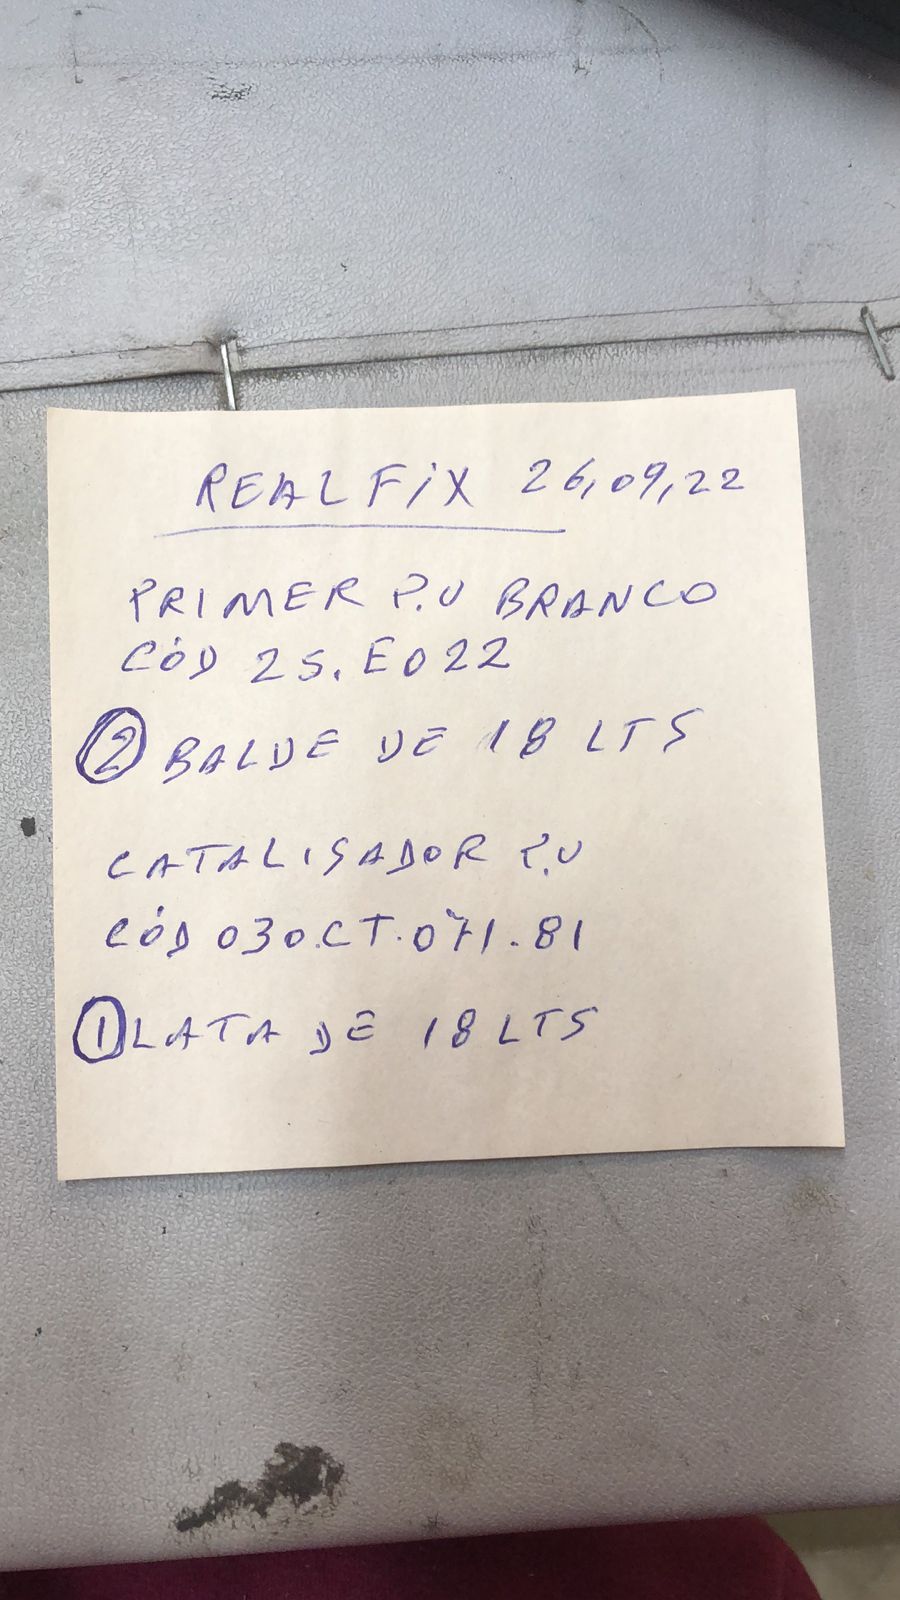 REALFIX 26,09,22
PRIMER P.U BRANCO
CÓD 25.E022
2 BALDE DE 18 LTS
CATALISADOR P.U
CÓD 030.CT.071.81
1 LATA DE 18 LTS